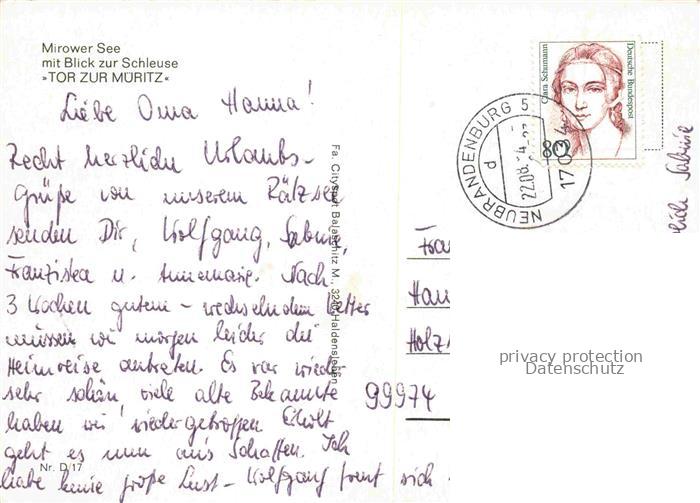 Mirower See
mit Blick zur Schleuse
»TOR ZUR MÜRITZ«
Liebe Oma Hanna!
Recht herzliche Urlaubs-
grüße von unserem Rätzsee
senden Dir, Wolfgang, Sabine,
Franziska u. Annemarie. Nach
3 Wochen gutem - wechselndem Wetter
müssen wir morgen leider die
Heimreise antreten. Es war wieder
sehr schön, viele alte Bekannte
haben wir wiedergetroffen. Erholt
geht es nun ans Schaffen. Ich
habe keine große Lust - Wolfgang freut sich
Nr. D/17
Fa. Citypost M., 3240 Haldensleben
Clara Schumann
Deutsche Bundespost
80
NEUBRANDENBURG 5
d
22.08.
17034
Sabine
Frau
Han
Holz
99974
privacy protection
Datenschutz